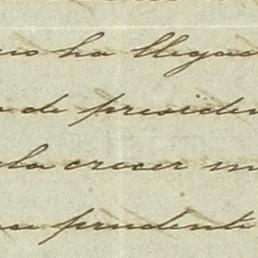 ha llegad
de presiden
la crecer m
se prudente